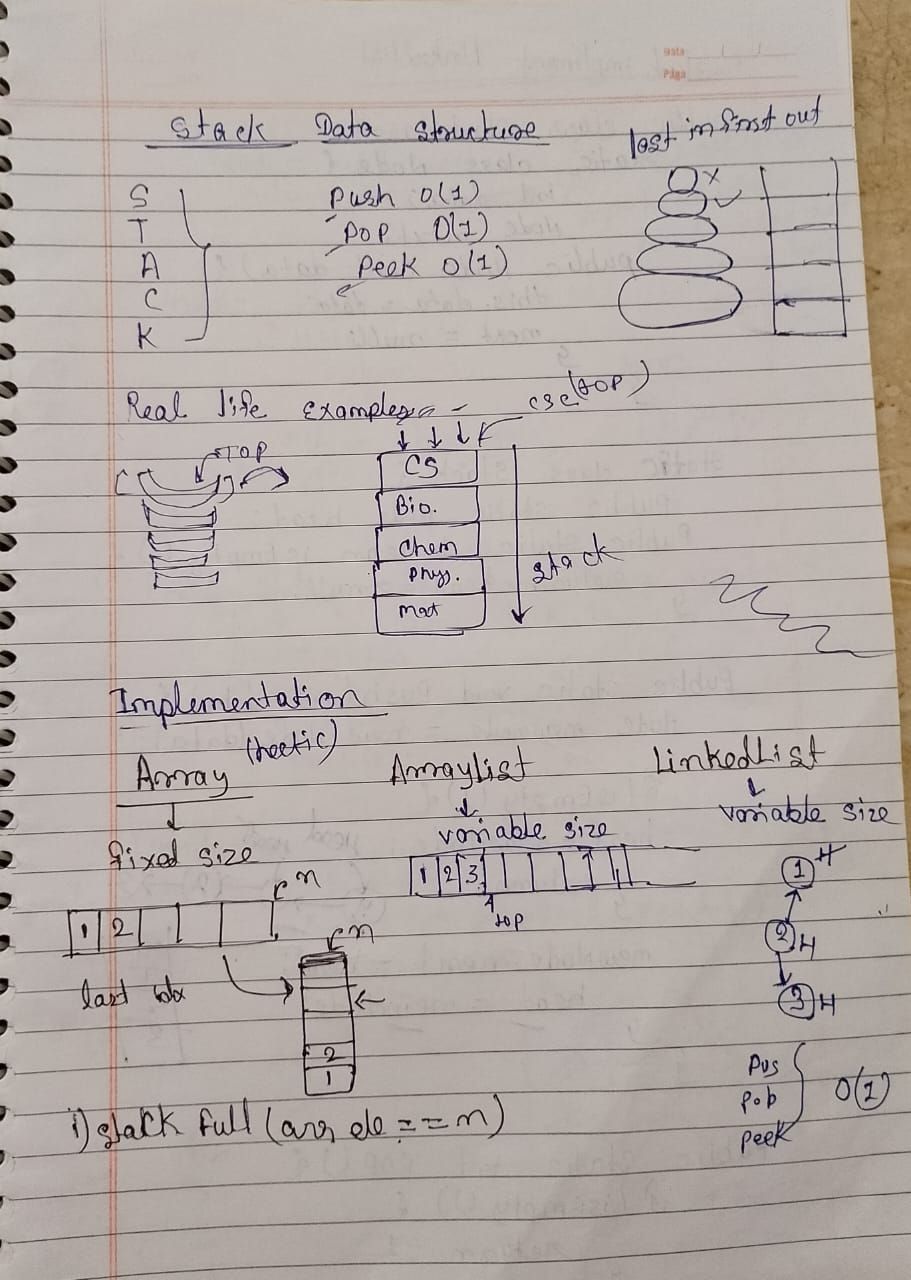 Data
Page
Stack Data Structure
last in first out
S
T
A
C
K
Push O(1)
Pop O(1)
Peek O(1)
Real life examples -
CSE (TOP)
TOP
CS
Bio.
Chem
Phys.
Mat
Stack
Implementation
(hectic)
Array
fixed size
n
1 2
last idx
n
2
1
ArrayList
variable size
1 2 3
top
LinkedList
variable size
1 H
2 H
3 H
Pus
Pop
Peek
O(1)
i) stack full (arr == n)